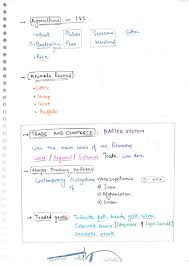 Agriculture in IVC
→ Wheat Pulses Sesame Cotton
→ Barley Pea Mustard
→ Rice
Animals Reared
→ Cattle
→ Sheep
→ Goat
→ Buffalo
TRADE AND COMMERCE: BARTER SYSTEM
was the main basis of the Economy
Local / Regional / External Trade is done
→ Major Trading partners:
Contemporary Civilizations of → Mesopotamia
→ Iran
→ Afghanistan
→ Oman
→ Traded goods: Terracotta pots, beads, gold, silver,
Coloured Gems